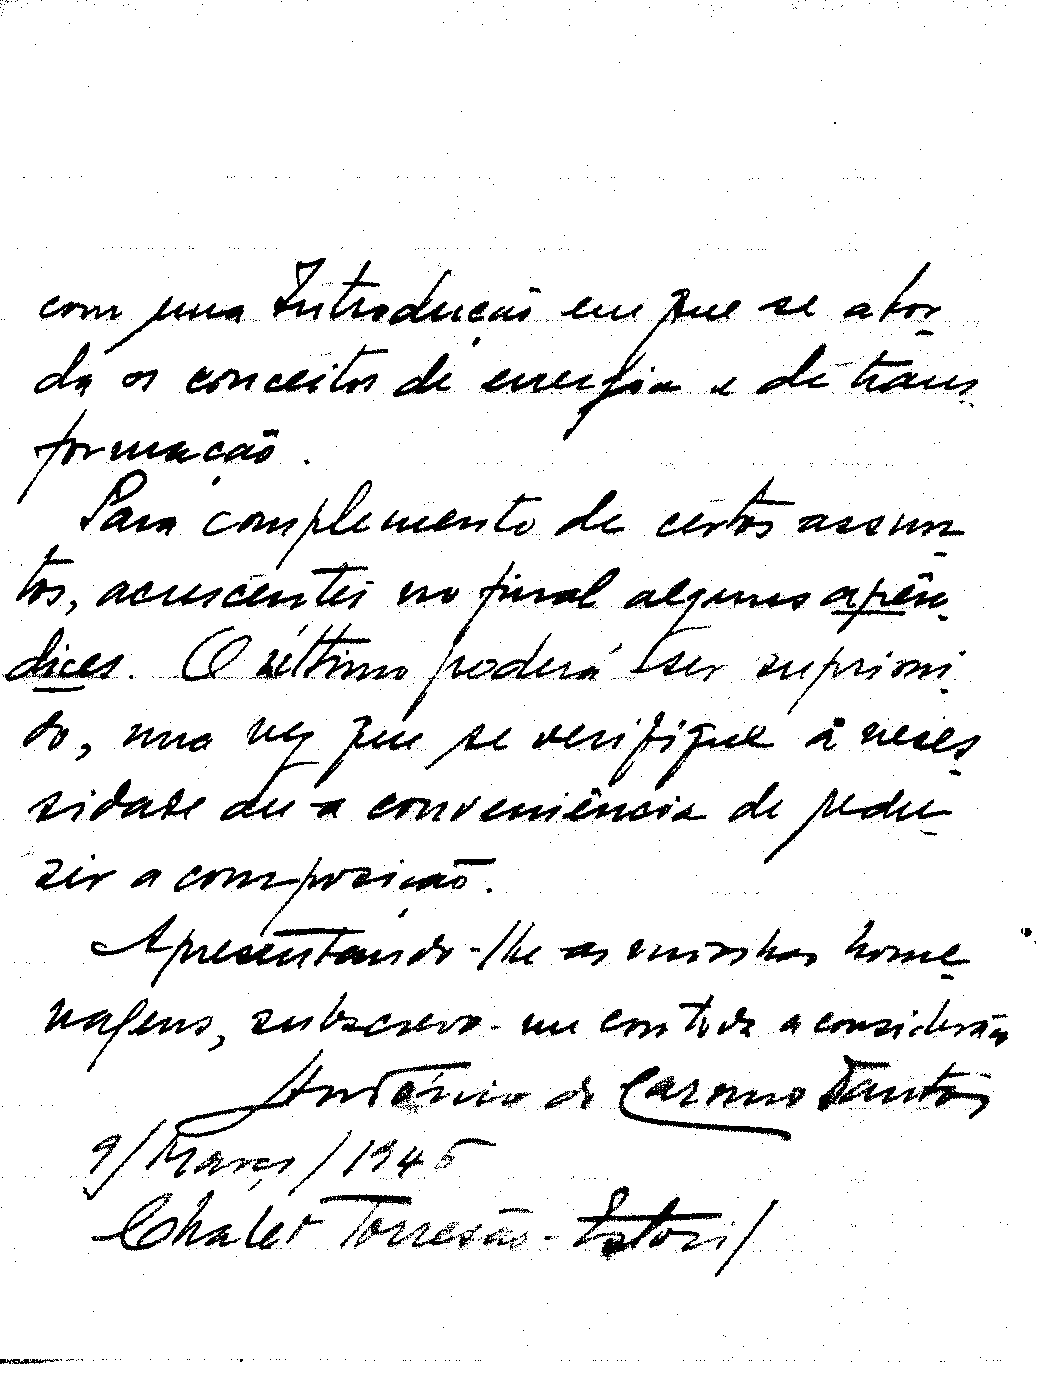 com uma Introdução em que se abor-
da os conceitos de energia e de trans-
formação.
Para complemento de certos assun-
tos, acrescentei no final alguns apên-
dices. O último poderá ser suprimi-
do, uma vez que se verifique a neces-
sidade ou a conveniência de redu-
zir a composição.
Apresentando-lhe as minhas home-
nagens, subscrevo-me com toda a consideração
António do Carmo Santos
9/Março/1945
Chalet Torresão - Estoril